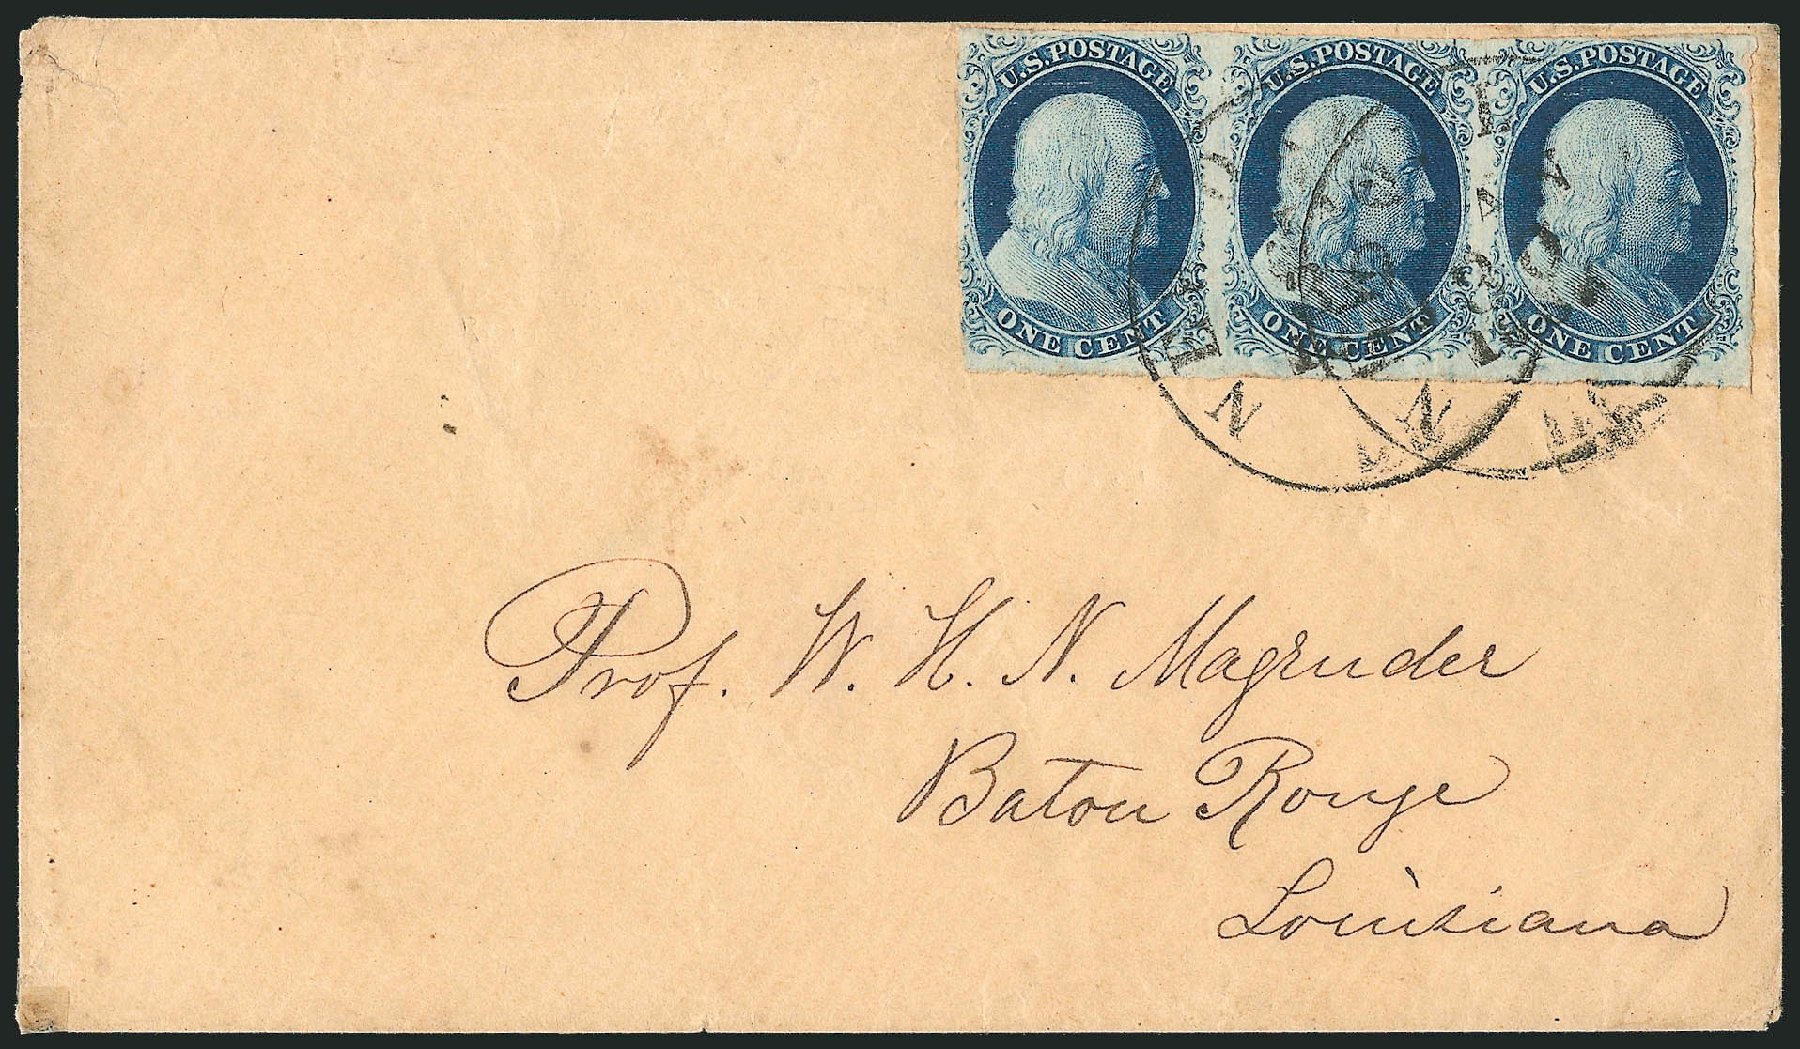 U.S. POSTAGE U.S. POSTAGE U.S. POSTAGE
ONE CENT ONE CENT ONE CENT
Prof. W. H. N. Magruder
Baton Rouge
Louisiana